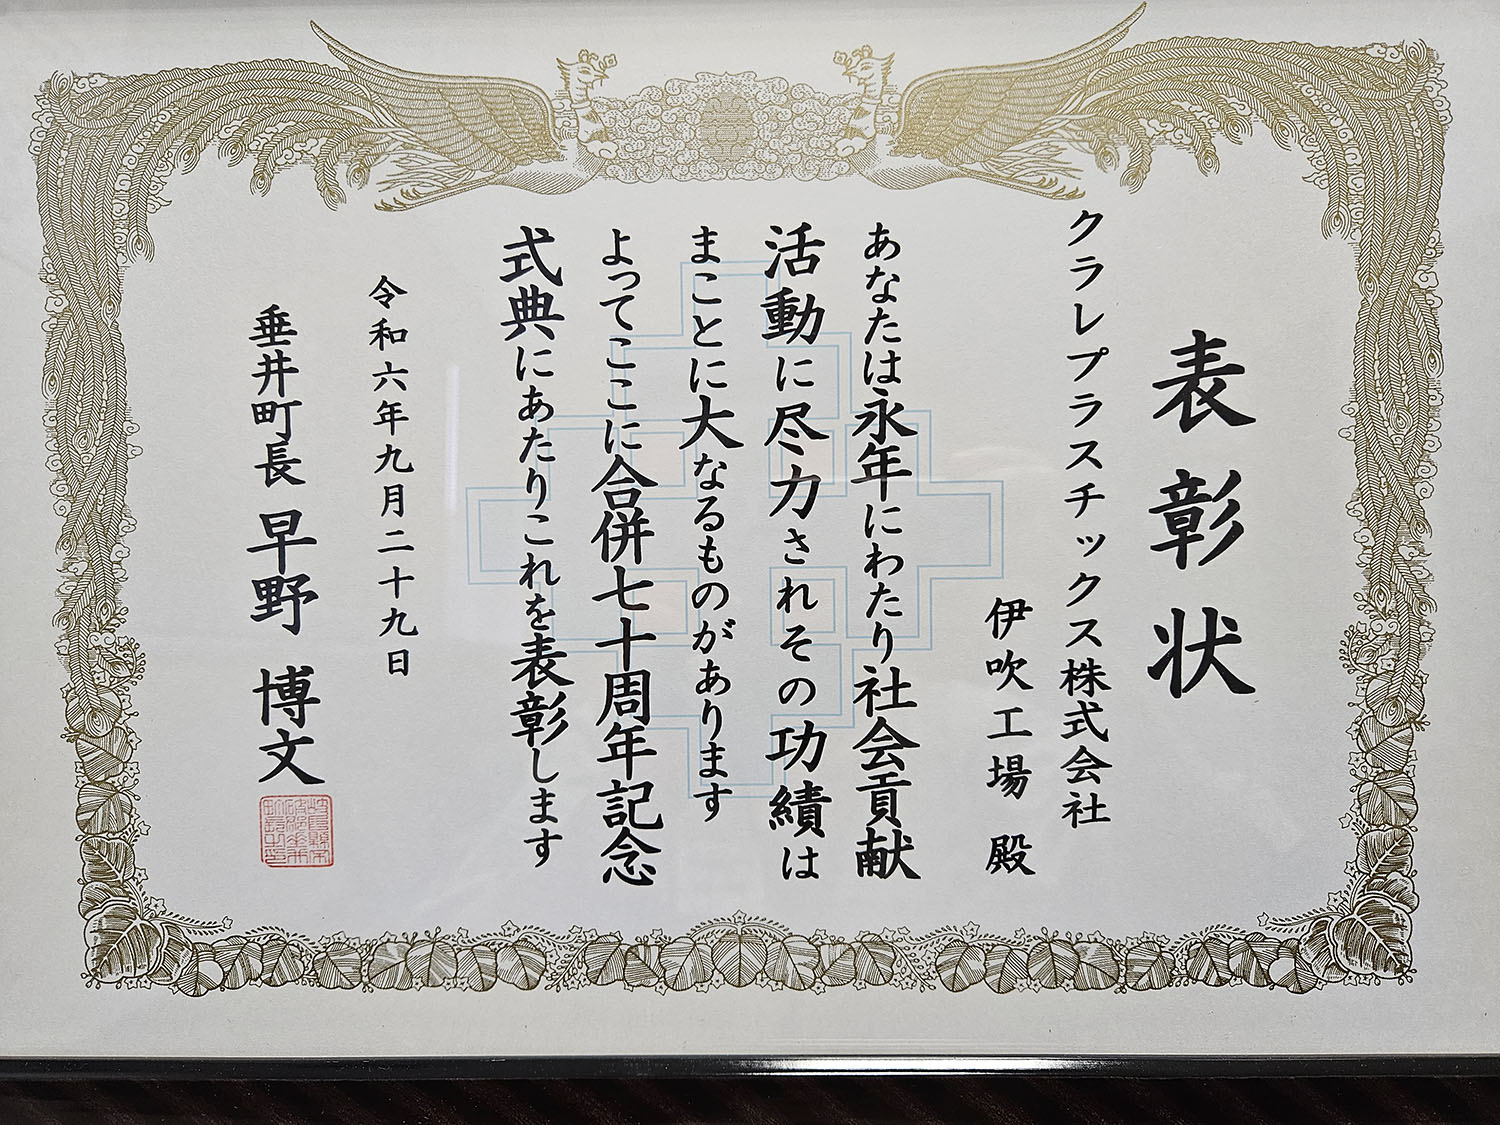 表彰状
クラレプラスチックス株式会社
伊吹工場 殿
あなたは永年にわたり社会貢献
活動に尽力されその功績は
まことに大なるものがあります
よってここに合併七十周年記念
式典にあたりこれを表彰します
令和六年九月二十九日
垂井町長 早野 博文